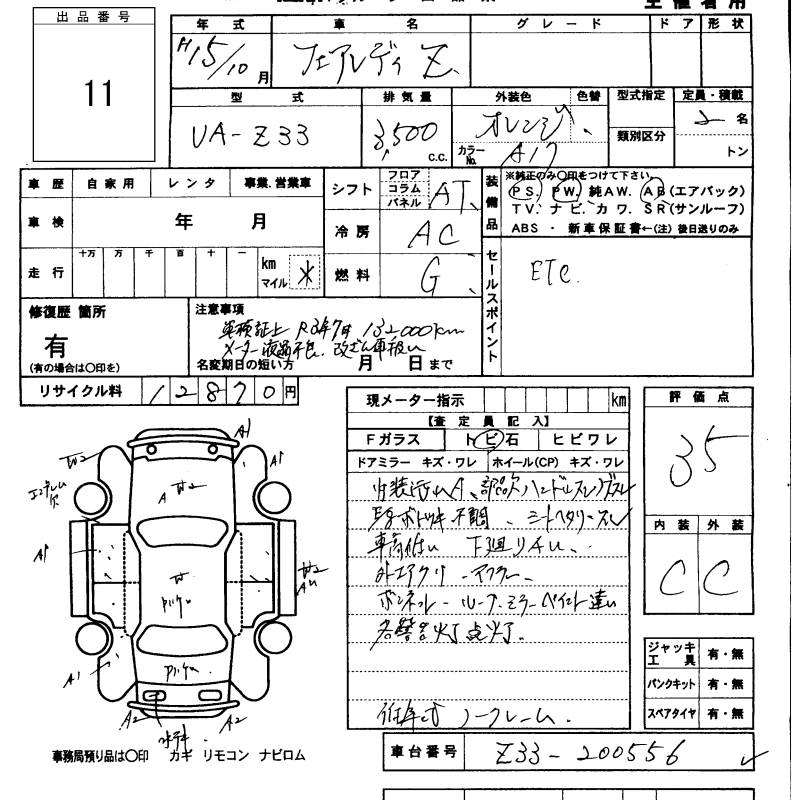 主催者用
出品番号
11
年式 車名 グレード ドア 形状
H15/10月 フェアレディ Z
型式 排気量 外装色 色替 型式指定 定員・積載
UA-Z33 3,500 c.c. オレンジ 類別区分 2名
カラーNo. A17 トン
車歴 自家用 レンタ 事業.営業車
シフト フロア コラム パネル AT
装備品 ※純正のみ〇印をつけて下さい。
PS. PW. 純AW. AB(エアバック)
TV. ナビ. カワ. SR(サンルーフ)
ABS ・ 新車保証書←(注)後日送りのみ
車検 年 月
冷房 AC
走行 十万 万 千 百 十 一 km マイル *
燃料 G
セールスポイント ETC.
修復歴 箇所
有
(有の場合は〇印を)
注意事項
車検証上 R3年7月 132000km
メーター液晶不良. 改ざん車扱い
名変期日の短い方 月 日まで
リサイクル料 12870円
現メーター指示 km
【査定員記入】
Fガラス トビ石 ヒビワレ
ドアミラー キズ・ワレ ホイール(CP) キズ・ワレ
評価点
35
内装 外装
C C
車高低い 下廻りキズ
外エアクリ マフラー
ボンネット ルーフ ミラー ペイント違い
各警告灯点灯.
低年式 ノークレーム.
A1
W2
A1
エンブレム欠
A W2
A1
W
W2
Aし
A1
A2
A2
ジャッキ工具 有・無
パンクキット 有・無
スペアタイヤ 有・無
事務局預り品は〇印 カギ リモコン ナビロム
車台番号 Z33-200556